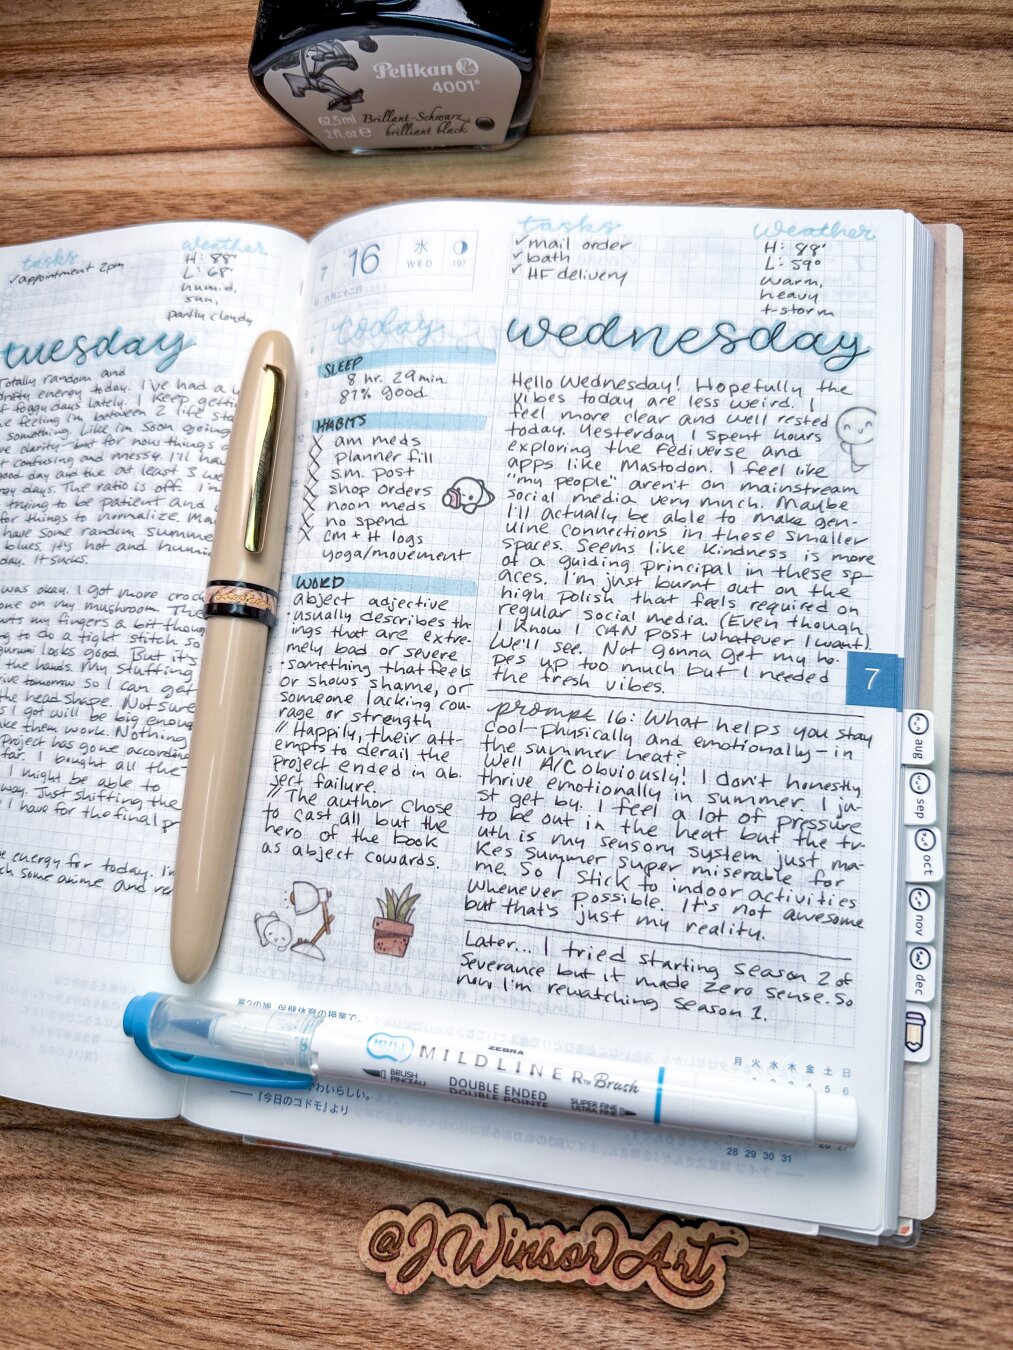 Pelikan
4001®
62,5 ml
2 fl.oz e
Brillant-Schwarz
brilliant black
tasks
✓appointment 2pm
weather
H: 88°
L: 68°
humid,
sun,
partly cloudy
tuesday
Totally random and
drifty energy today. I've had a
of foggy days lately. I keep
feeling I'm between 2 life
something. Like I'm soon going
clarity, but for now things
confusing and messy. I'll
good day and the at least 3
days. The ratio is off. I'm
trying to be patient and
for things to normalize.
have some random summer
blues. It's hot and humid
day. It sucks.
was okay. I got more
one on my mushroom. The
hurts my fingers a bit though
to do a tight stitch so
looks good. But it's
the hands. My stuffing
tomorrow so I can get
the head shape. Not sure
I got will be big enough
make them work. Nothing
Project has gone
far. I bought all the
I might be able to
way. Just shifting the
I have for the final
energy for today. I'm
some anime and
7 16
水
WED
197
today
SLEEP
8 hr. 29min.
87% good
HABITS
am meds
planner fill
s.m. post
shop orders
noon meds
no spend
cm + H logs
yoga/movement
WORD
abject adjective
·usually describes th-
ings that are extre-
mely bad or severe
·something that feels
or shows shame, or
someone lacking cou-
rage or strength
// Happily, their att-
empts to derail the
project ended in ab-
ject failure.
// The author chose
to cast all but the
hero of the book
as abject cowards.
tasks
✓mail order
✓bath
✓HF delivery
weather
H: 88°
L: 59°
warm,
heavy
t-storm
wednesday
Hello Wednesday! Hopefully the
vibes today are less weird. I
feel more clear and well rested
today. Yesterday I spent hours
exploring the fediverse and
apps like Mastodon. I feel like
"my people" aren't on mainstream
social media very much. Maybe
I'll actually be able to make gen-
uine connections in these smaller
spaces. Seems like kindness is more
of a guiding principal in these sp-
aces. I'm just burnt out on the
high polish that feels required on
regular social media. (Even though
I know I CAN post whatever I want).
We'll see. Not gonna get my ho-
pes up too much but I needed
the fresh vibes.
prompt 16: What helps you stay
cool-physically and emotionally-in
the summer heat?
Well A/C obviously! I don't honestly
thrive emotionally in summer. I ju-
st get by. I feel a lot of pressure
to be out in the heat but the tr-
uth is my sensory system just ma-
kes summer super miserable for
me. So I stick to indoor activities
whenever possible. It's not awesome
but that's just my reality.
Later... I tried starting season 2 of
Severance but it made zero sense. So
now I'm rewatching season 1.
7
aug
sep
oct
nov
dec
かわいらしい。
——『今日のコドモ』より
月 火 水 木 金 土 日
4 5 6
28 29 30 31
ZEBRA
MILDLINER™ Brush
BRUSH
PINCEAU
DOUBLE ENDED
DOUBLE POINTE
SUPER FINE
ULTRA FINE
@JWinsorArt